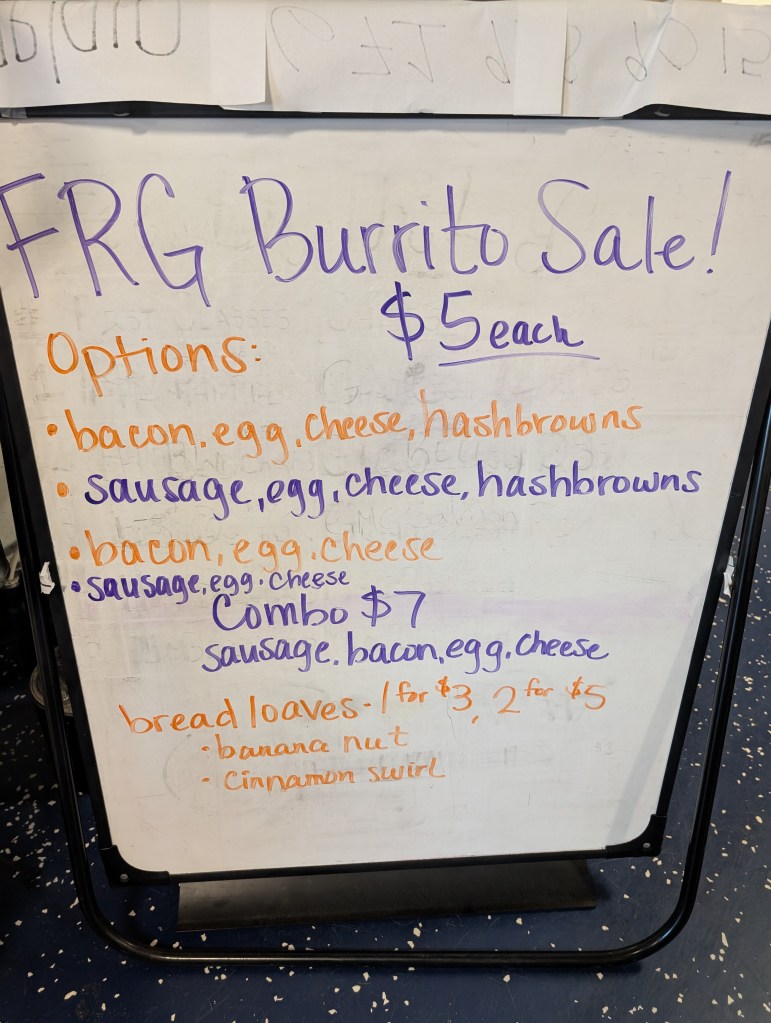 FRG Burrito Sale!
$5 each
Options:
• bacon, egg, cheese, hashbrowns
• sausage, egg, cheese, hashbrowns
• bacon, egg, cheese
• sausage, egg, cheese
Combo $7
sausage, bacon, egg, cheese
bread loaves - 1 for $3, 2 for $5
- banana nut
- cinnamon swirl